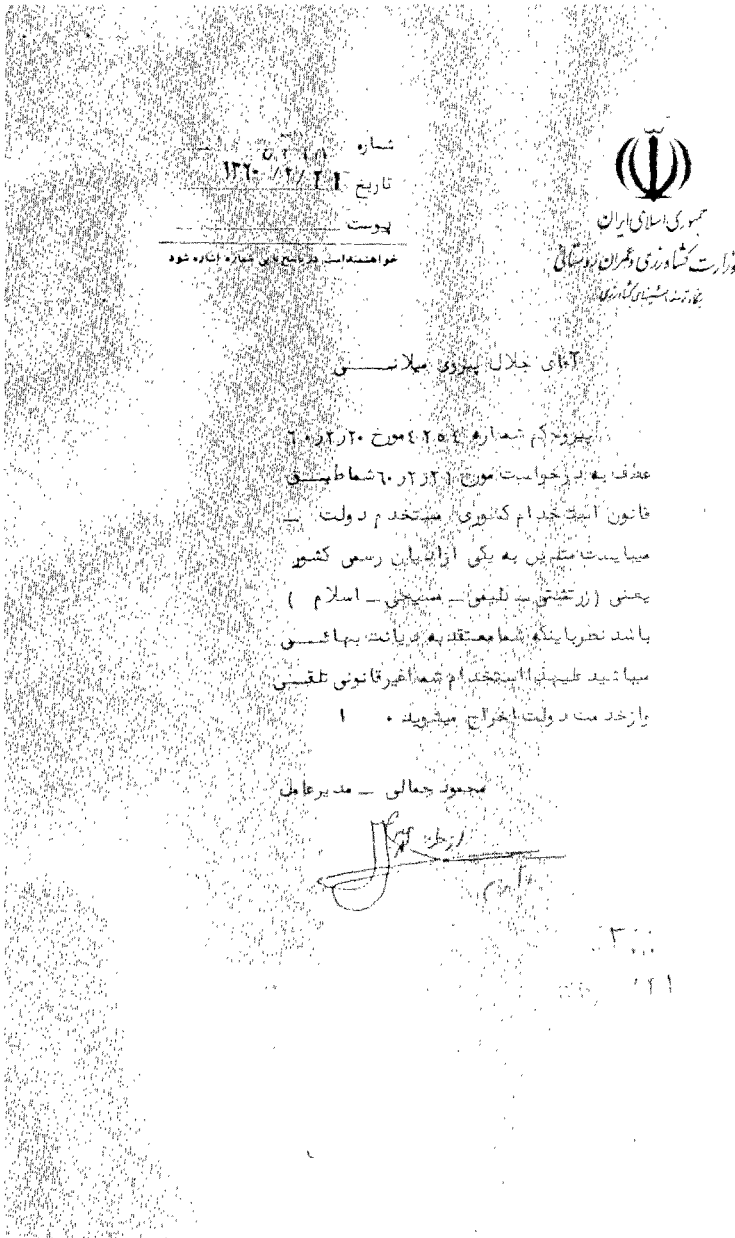 جمهوری اسلامی ایران
وزارت کشاورزی و عمران روستائی
شماره
تاریخ ۱۳۶۰/۲/۲۱
پیوست
خواهشمند است در پاسخ باین شماره اشاره شود
آقای جلال پیروی میلانـــــی
پیرو حکم شماره ٤٢٥٤ مورخ ۲۰ر۲ر٦۰
عطف به درخواست مورخ ۲۱ر۲ر٦۰ شما طبــق
قانون استخدام کشوری مستخدم دولت ــ
میبایست متدین به یکی از ادیان رسمی کشور
یعنی (زرتشتی ــ کلیمی ــ مسیحی ــ اسلام )
باشد نظر باینکه شما معتقد به دیانت بهائـــی
میباشید علیهذا استخدام شما غیرقانونی تلقـــی
و از خدمت دولت اخراج میشوید ۰ ۱
محمود جمالی ــ مدیرعامل
از طرف